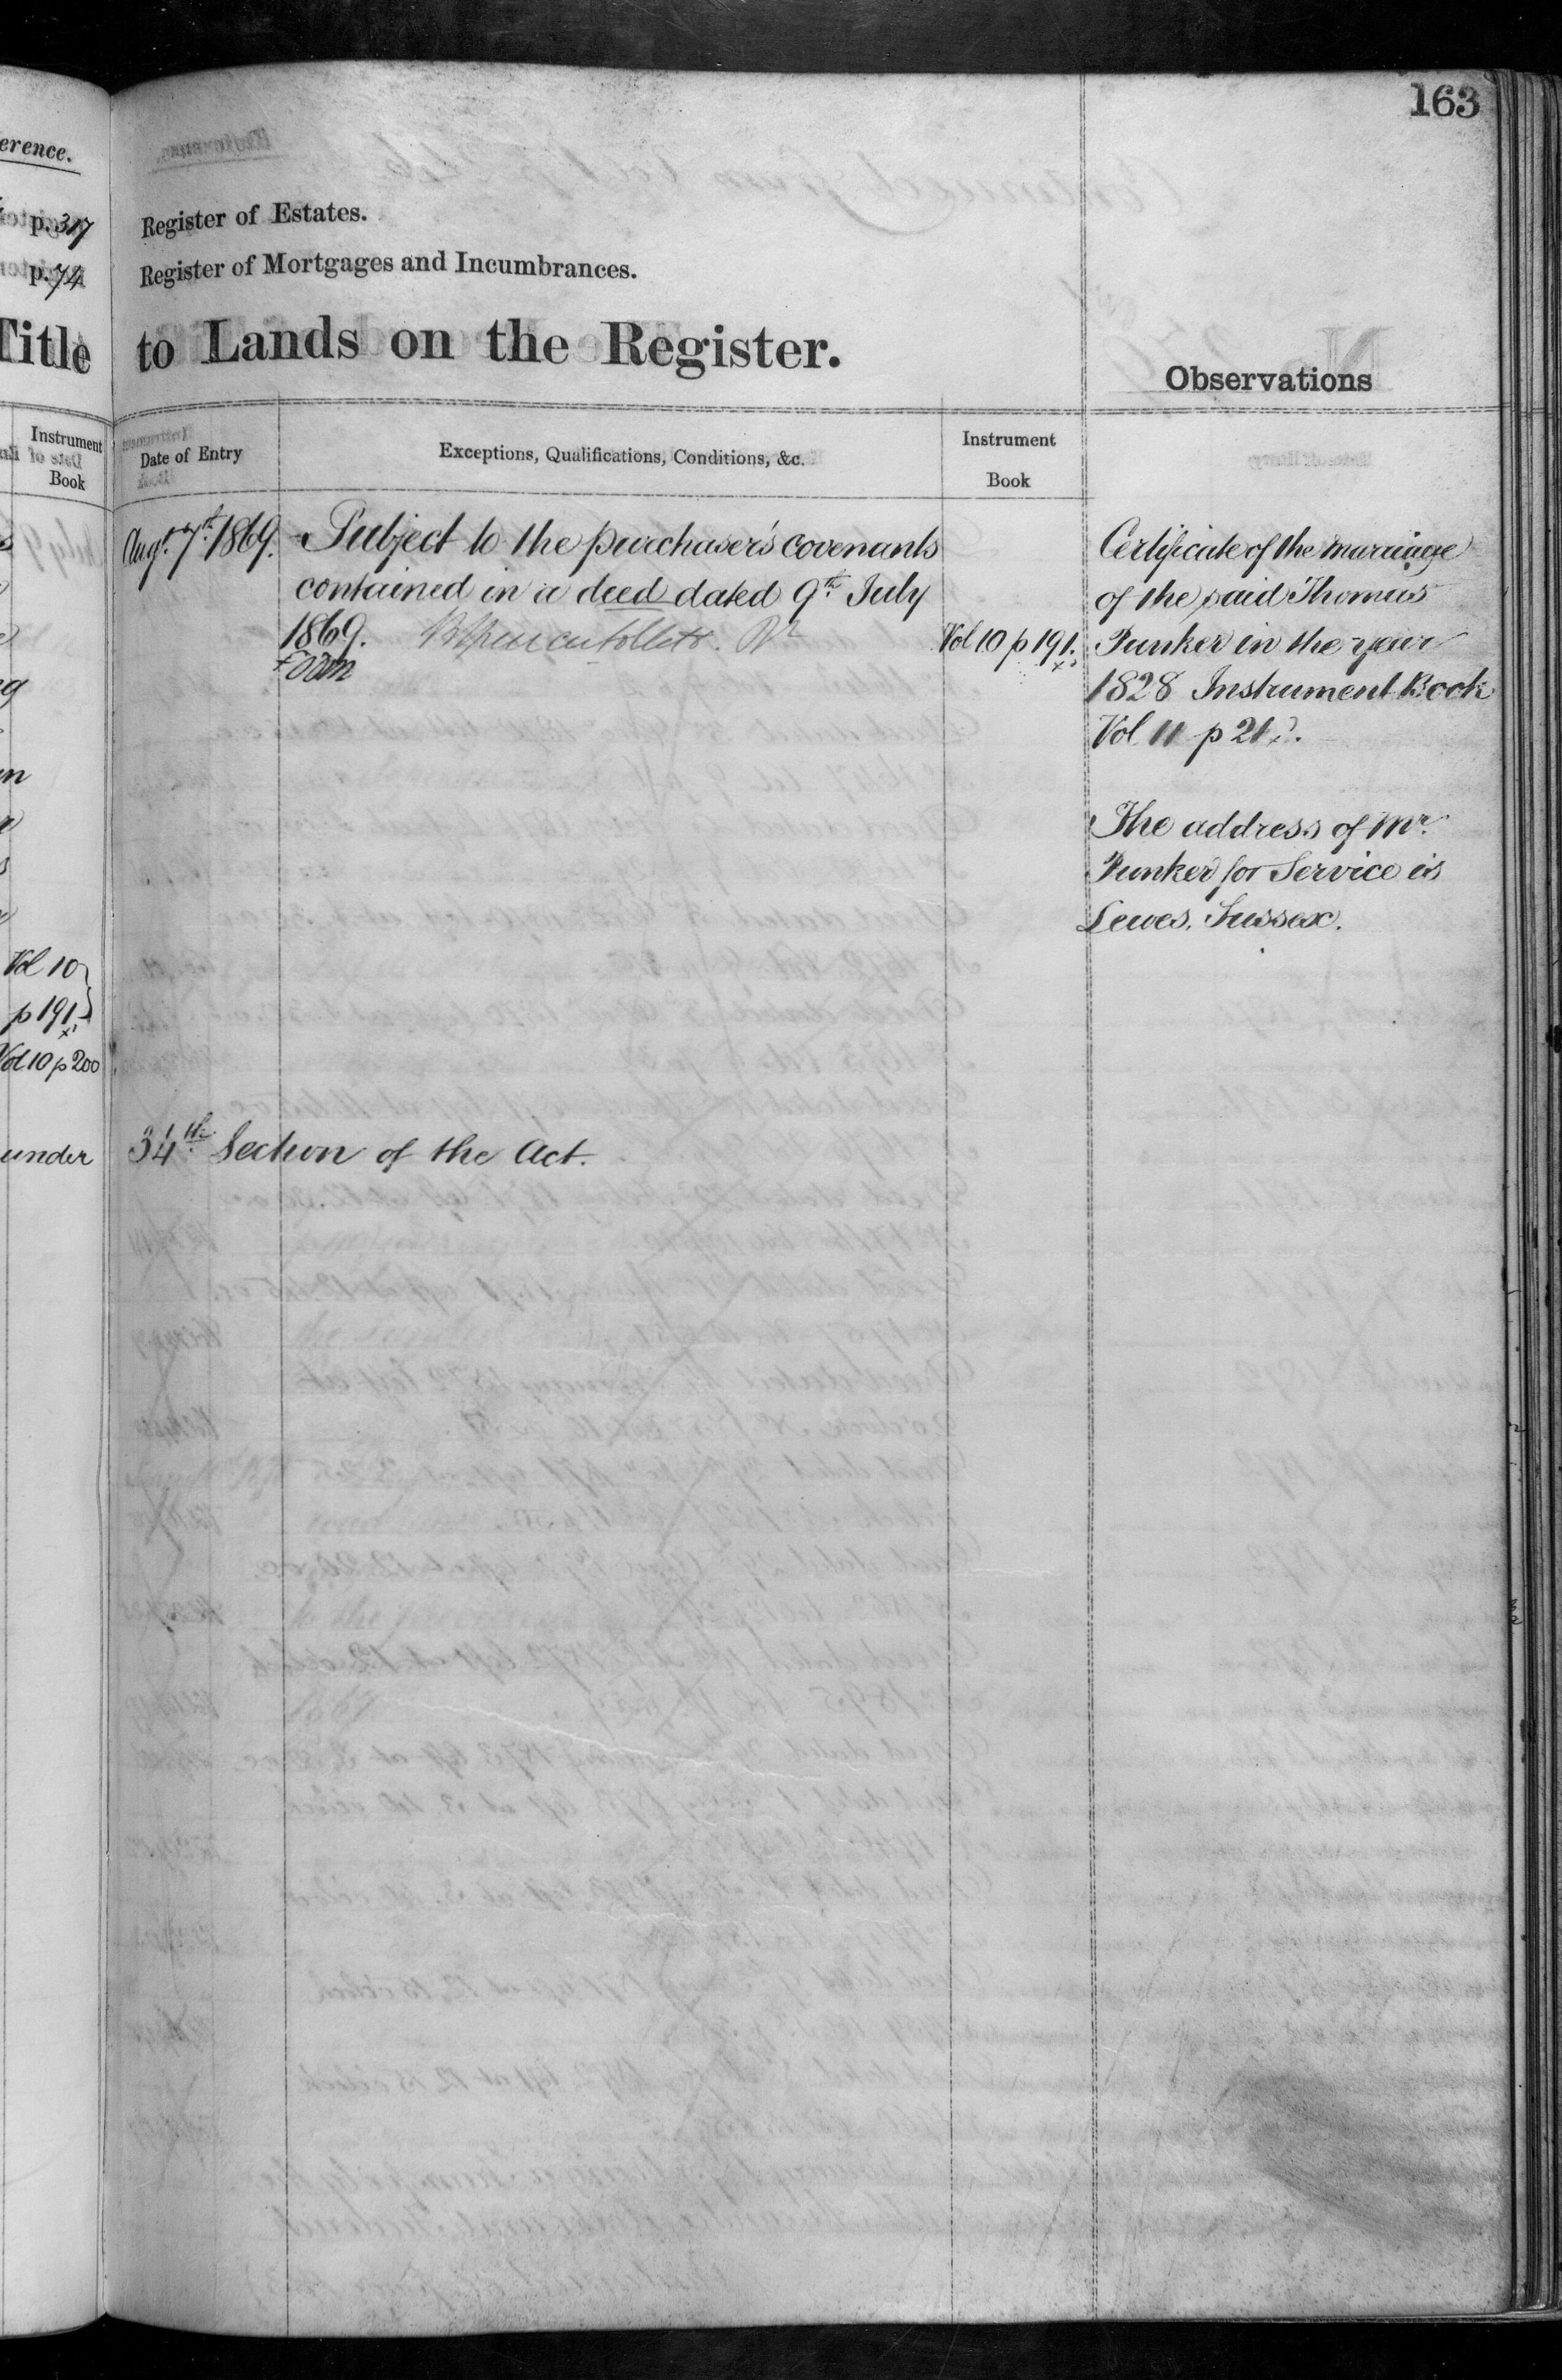 163
erence.
p. 317
p. 74
Register of Estates.
Register of Mortgages and Incumbrances.
Title to Lands on the Register.
Observations
Instrument
Book
Date of Entry
Exceptions, Qualifications, Conditions, &c.
Instrument
Book
Augt. 7th 1869.
Subject to the purchaser's covenants
contained in a deed dated 9th July
1869.
Vol 10 p 191.
Certificate of the marriage
of the said Thomas
Punker in the year
1828 Instrument Book
Vol 11 p 21
The address of Mr.
Punker for Service is
Lewes, Sussex.
Vol 10
p 191
Vol 10 p 200
under 34th Section of the Act.